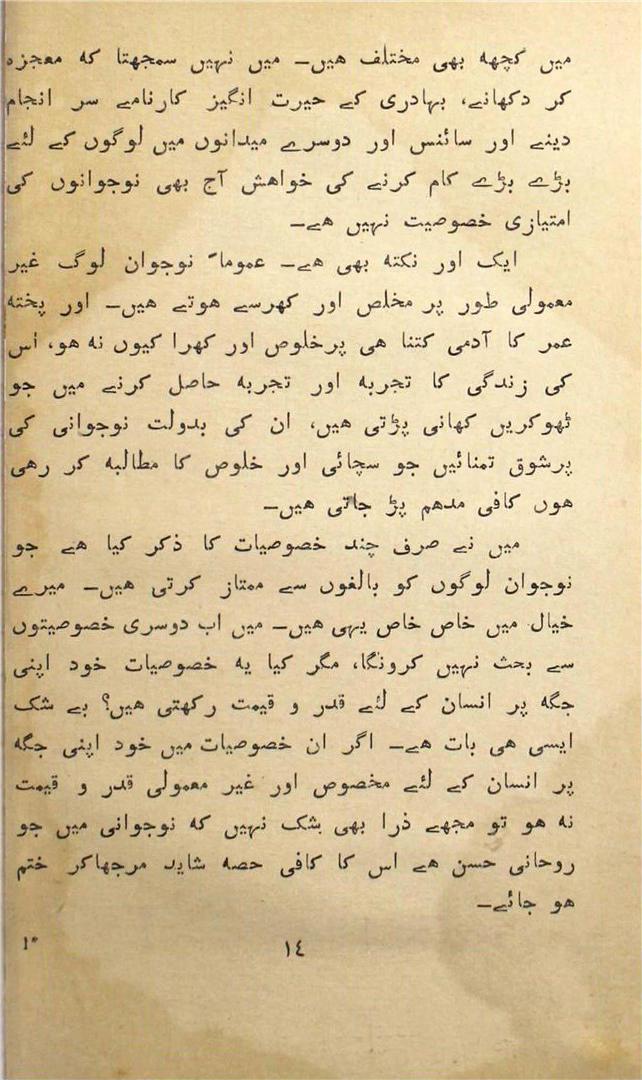 میں کچھہ بھی مختلف ھیں۔ میں نہیں سمجھتا کہ معجزہ
کر دکھانے، بہادری کے حیرت انگیز کارنامے سر انجام
دینے اور سائنس اور دوسرے میدانوں میں لوگوں کے لئے
بڑے بڑے کام کرنے کی خواھش آج بھی نوجوانوں کی
امتیازی خصوصیت نہیں ھے۔
ایک اور نکتہ بھی ھے۔ عموماً نوجوان لوگ غیر
معمولی طور پر مخلص اور کھرسے ھوتے ھیں۔ اور پختہ
عمر کا آدمی کتنا ھی پرخلوص اور کھرا کیوں نہ ھو، اُس
کی زندگی کا تجربہ اور تجربہ حاصل کرنے میں جو
ٹھوکریں کھانی پڑتی ھیں، ان کی بدولت نوجوانی کی
پرشوق تمنائیں جو سچائی اور خلوص کا مطالبہ کر رھی
ھوں کافی مدھم پڑ جاتی ھیں۔
میں نے صرف چند خصوصیات کا ذکر کیا ھے جو
نوجوان لوگوں کو بالغوں سے ممتاز کرتی ھیں۔ میرے
خیال میں خاص خاص یہی ھیں۔ میں اب دوسری خصوصیتوں
سے بحث نہیں کرونگا، مگر کیا یہ خصوصیات خود اپنی
جگہ پر انسان کے لئے قدر و قیمت رکھتی ھیں؟ بے شک
ایسی ھی بات ھے۔ اگر ان خصوصیات میں خود اپنی جگہ
پر انسان کے لئے مخصوص اور غیر معمولی قدر و قیمت
نہ ھو تو مجھے ذرا بھی شک نہیں کہ نوجوانی میں جو
روحانی حسن ھے اس کا کافی حصہ شاید مرجھاکر ختم
ھو جائے۔
١٤
1*